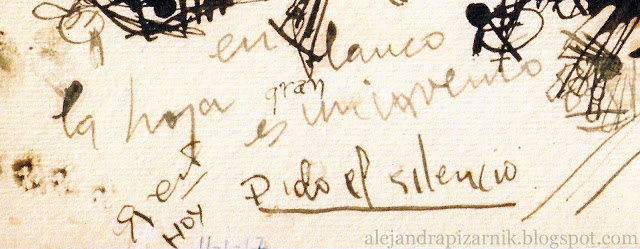 en blanco
la hoja
gran
es un invento
Pido el silencio
HOY
alejandrapizarnik.blogspot.com